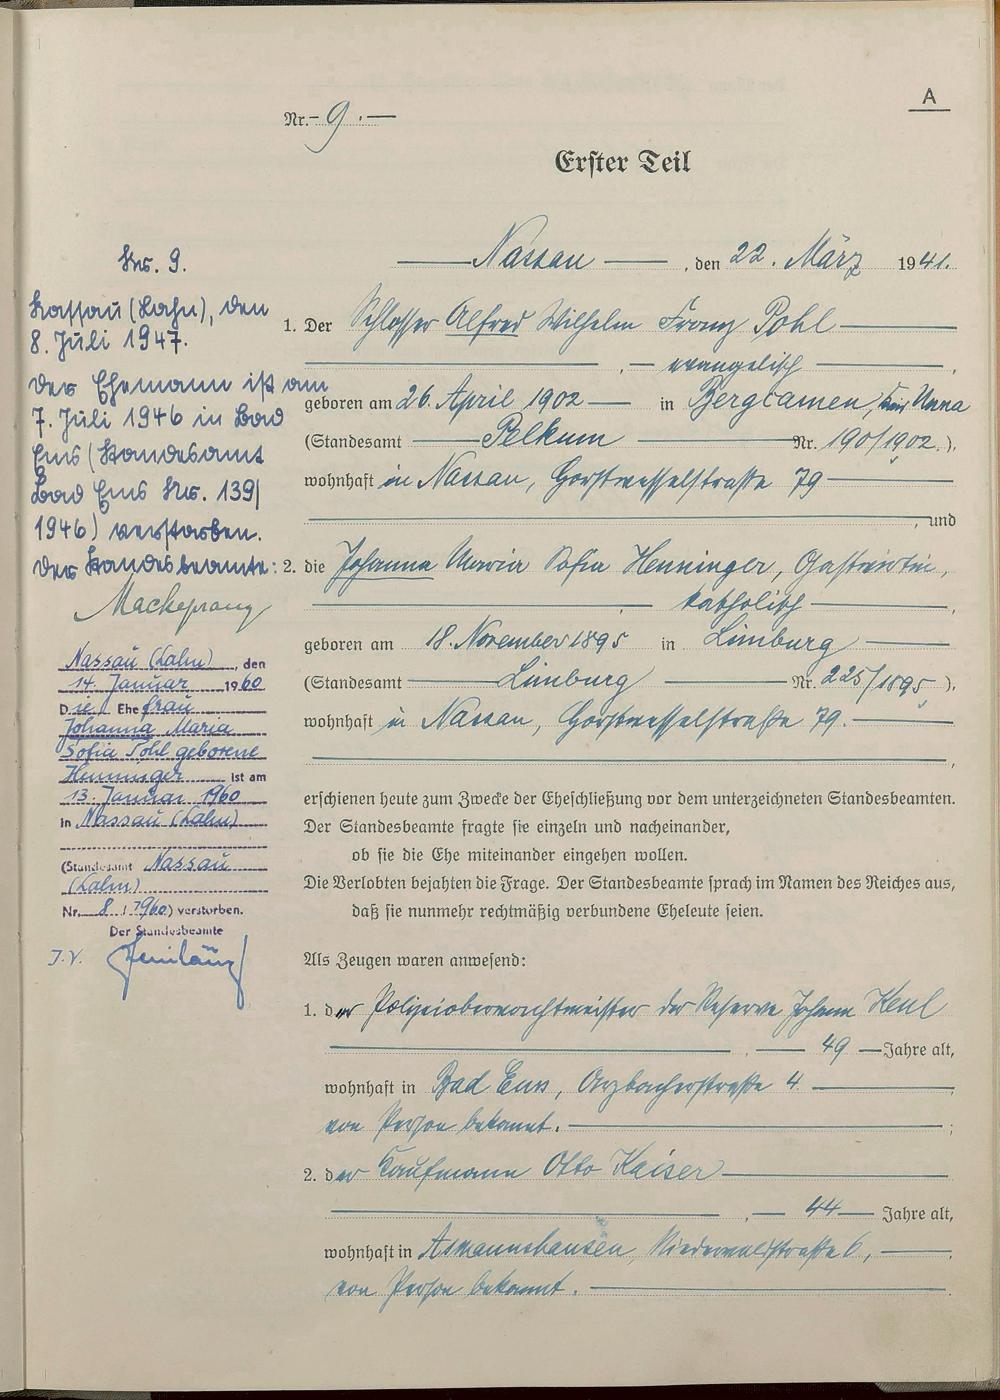 A
Nr. 9.
Erster Teil
Nassau, den 22. März 1941.
1. Der Schlosser Alfred Wilhelm Franz Pohl
evangelisch,
geboren am 26. April 1902 in Bergcamen, Krs. Unna
(Standesamt Pelkum Nr. 190/1902.),
wohnhaft in Nassau, Horstwesselstraße 79
, und
2. die Johanna Maria Sofia Henninger, Gastwirtin,
katholisch,
geboren am 18. November 1895 in Limburg
(Standesamt Limburg Nr. 225/1895),
wohnhaft in Nassau, Horstwesselstraße 79.
,
erschienen heute zum Zwecke der Eheschließung vor dem unterzeichneten Standesbeamten.
Der Standesbeamte fragte sie einzeln und nacheinander,
ob sie die Ehe miteinander eingehen wollen.
Die Verlobten bejahten die Frage. Der Standesbeamte sprach im Namen des Reiches aus,
daß sie nunmehr rechtmäßig verbundene Eheleute seien.
Als Zeugen waren anwesend:
1. der Polizeioberwachtmeister der Reserve Johann Keul
, 49 Jahre alt,
wohnhaft in Bad Ems, Arzbacherstraße 4
von Person bekannt. ;
2. der Kaufmann Otto Kaiser
, 44 Jahre alt,
wohnhaft in Asmannshausen, Niederwaldstraße 6,
von Person bekannt.
Nr. 9.
Nassau (Lahn), den
8. Juli 1947.
Der Ehemann ist am
7. Juli 1946 in Bad
Ems (Standesamt
Bad Ems Nr. 139/
1946) verstorben.
Der Standesbeamte:
Mackeprang
Nassau (Lahn), den
14. Januar 1960
Die Ehefrau
Johanna Maria
Sofia Pohl geborene
Henninger ist am
13. Januar 1960
in Nassau (Lahn)
(Standesamt Nassau
(Lahn)
Nr. 8 / 1960) verstorben.
Der Standesbeamte
I.V.